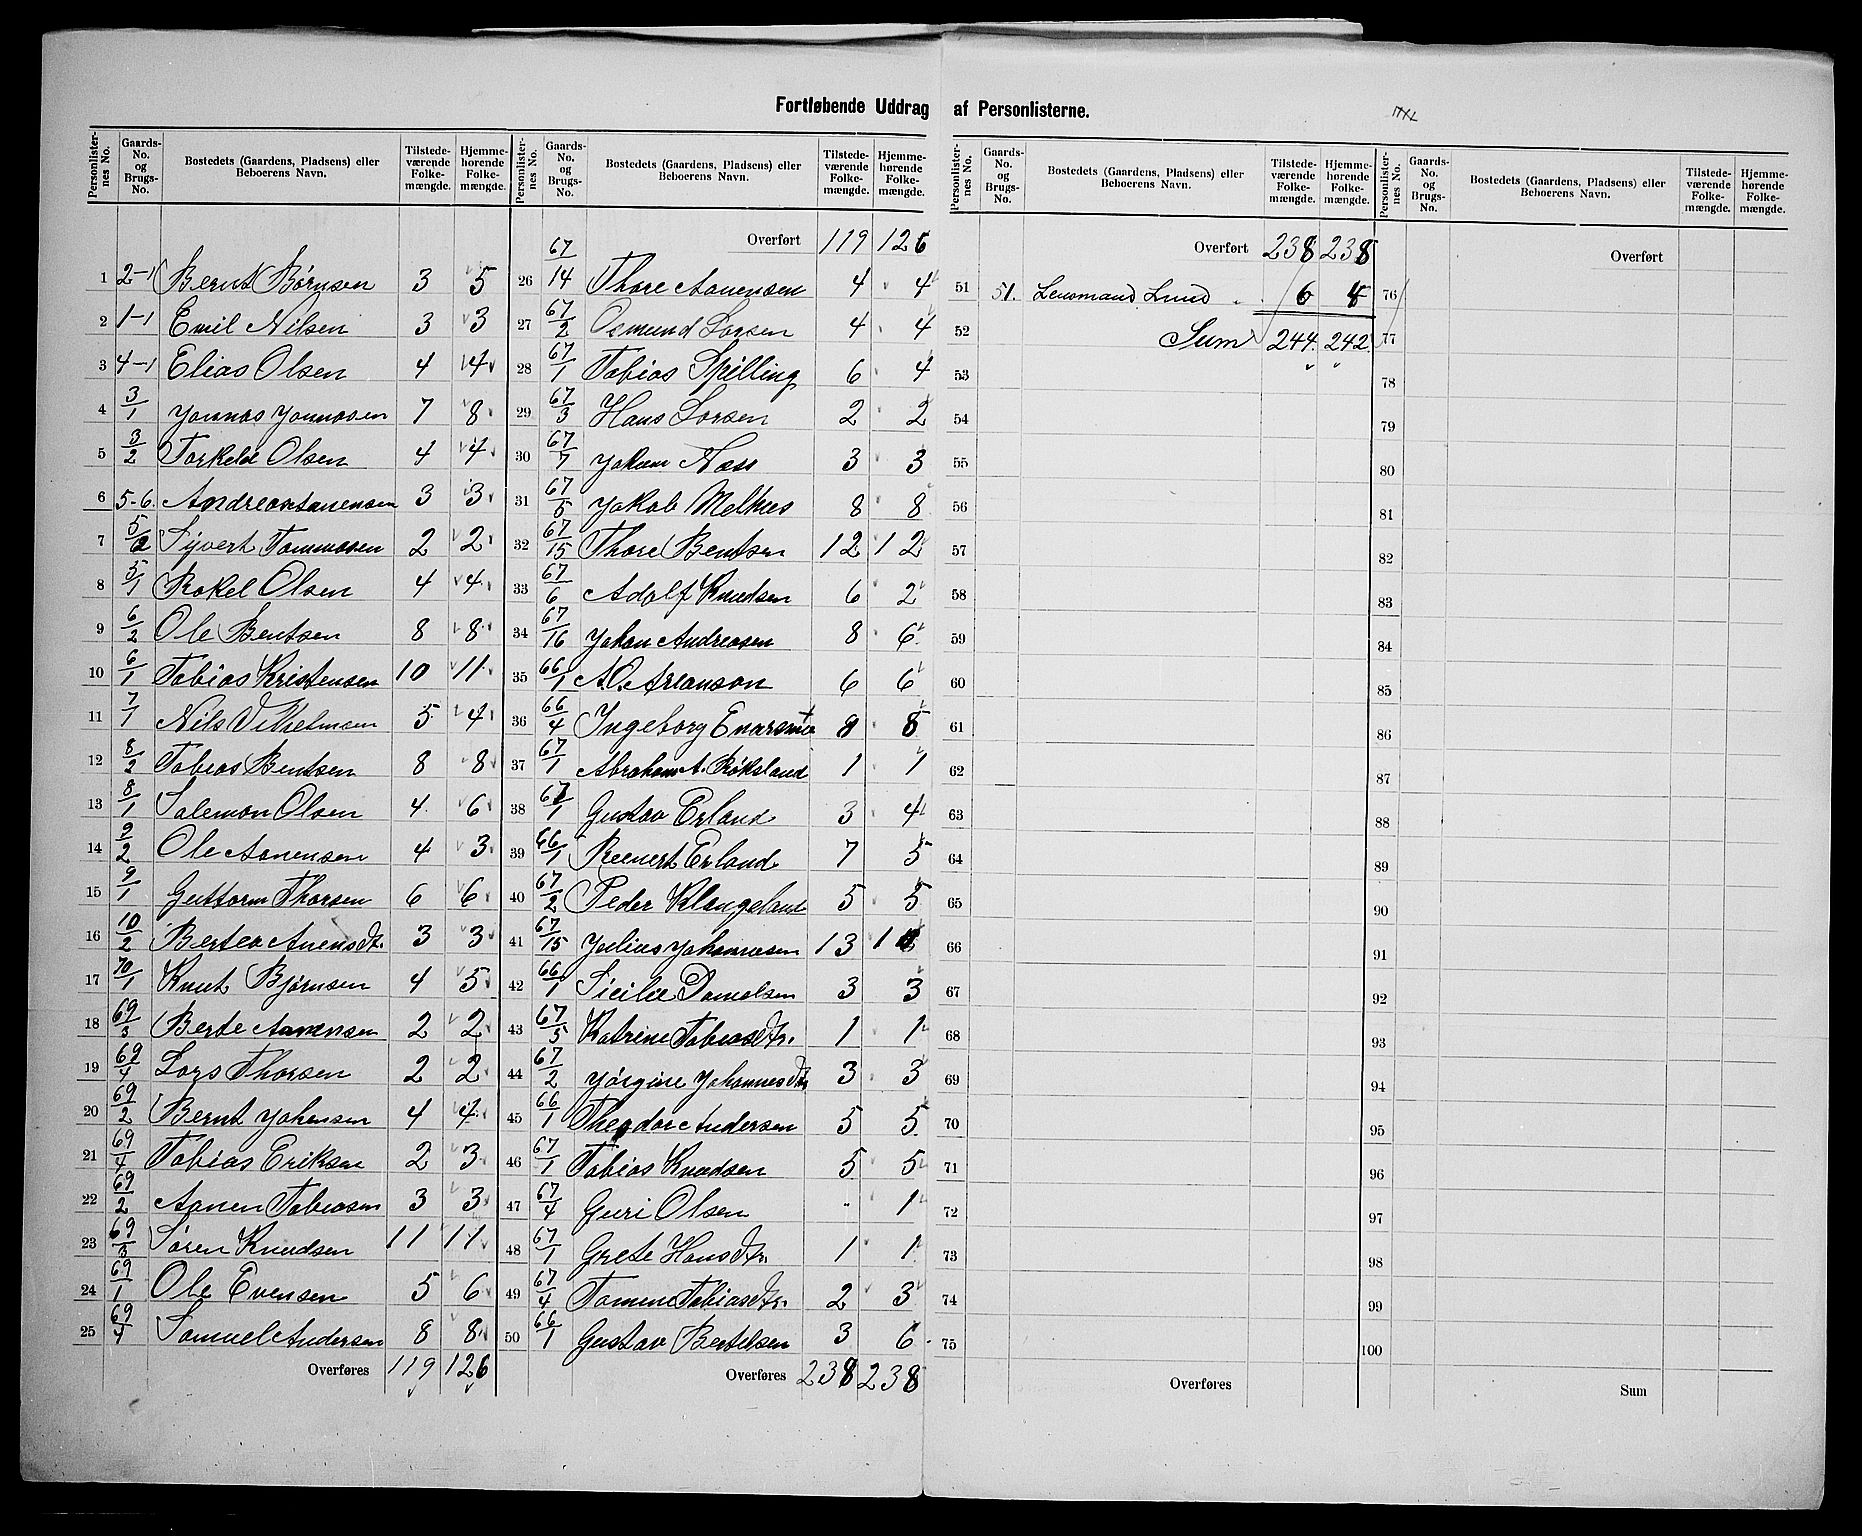 Fortløbende Uddrag af Personlisterne.
Personlister-nes No. | Gaards-No. og Brugs-No. | Bostedets (Gaardens, Pladsens) eller Beboerens Navn. | Tilstedeværende Folkemængde. | Hjemmehørende Folkemængde.
1 2-1 Bernt Børnsen 3 5
2 1-1 Emil Nilsen 3 3
3 4-1 Elias Olsen 4 4
4 3/1 Jonnas Jonnasen 7 8
5 3/2 Torkeld Olsen 4 4
6 5-6 Andreas Aanensen 3 3
7 5/2 Syvert Tommasen 2 2
8 5/1 Rakel Olsen 4 4
9 6/2 Ole Bentsen 8 8
10 6/1 Tobias Kristensen 10 11
11 7/1 Nils Vilhelmsen 5 4
12 8/2 Tobias Bentsen 8 8
13 8/1 Salemon Olsen 4 6
14 9/2 Ole Aanensen 4 3
15 9/1 Guttorm Thorsen 6 6
16 10/2 Bertea Anensdtr. 3 3
17 70/1 Knut Bjørnsen 4 5
18 69/3 Berte Aanensen 2 2
19 69/4 Lars Thorsen 2 2
20 69/2 Bernt Johensen 4 4
21 69/4 Tobias Eriksen 2 3
22 69/2 Aanen Tobiasen 3 3
23 69/3 Søren Knudsen 11 11
24 69/1 Ole Evensen 5 6
25 69/4 Samuel Andersen 8 8
Overføres 119 126
Personlister-nes No. | Gaards-No. og Brugs-No. | Bostedets (Gaardens, Pladsens) eller Beboerens Navn. | Tilstedeværende Folkemængde. | Hjemmehørende Folkemængde.
Overført 119 126
26 67/14 Thore Aanensen 4 4
27 67/2 Osmund Larsen 4 4
28 67/1 Tobias Spilling 6 4
29 67/3 Hans Larsen 2 2
30 67/7 Johan Næss 3 3
31 67/5 Jakob Melhus 8 8
32 67/15 Thore Bentsen 12 12
33 67/6 Adolf Knudsen 6 2
34 67/16 Johan Andreasen 8 6
35 66/1 A.O. Areanson 6 6
36 66/4 Ingeborg 8 8
37 67/1 Abraham A. Røksland 1 1
38 67/1 Gustav Erland 3 4
39 66/1 Reenert Erland 7 5
40 67/2 Peder Klangeland 5 5
41 67/15 Julius Johannesen 13
42 66/1 Sicilie Danielsen 3 3
43 67/5 Katrine Tobiasdtr. 1 1
44 67/2 Jørgine Johannesdtr 3 3
45 66/1 Theodor Andersen 5 5
46 67/1 Tobias Knudsen 5 5
47 67/4 Guri Olsen " 1
48 67/1 Grete Hansdtr. 1 1
49 67/4 Tomine Tobiasdtr. 2 3
50 66/1 Gustav Bertelsen 3 6
Overføres 238 238
Personlister-nes No. | Gaards-No. og Brugs-No. | Bostedets (Gaardens, Pladsens) eller Beboerens Navn. | Tilstedeværende Folkemængde. | Hjemmehørende Folkemængde.
Overført 238 238
51 51. Lensmand Lund 6 4
52 Sum 244 242
53
54
55
56
57
58
59
60
61
62
63
64
65
66
67
68
69
70
71
72
73
74
75
Overføres
Personlister-nes No. | Gaards-No. og Brugs-No. | Bostedets (Gaardens, Pladsens) eller Beboerens Navn. | Tilstedeværende Folkemængde. | Hjemmehørende Folkemængde.
Overført
76
77
78
79
80
81
82
83
84
85
86
87
88
89
90
91
92
93
94
95
96
97
98
99
100
Sum